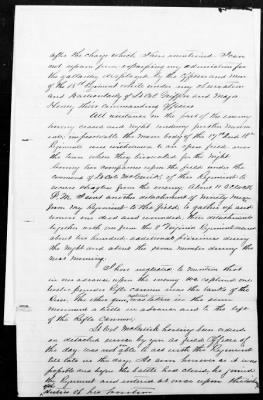 after the charge which I have mentioned. I can
not refrain from expressing my admiration for
the gallantry displayed by the officers and men
of the 18th Regiment while under my observation
and Particularly of Lt Col Griffin and Major
Henry their Commanding officers
All resistance on the part of the enemy
having ceased and night rendering further move
ments impracticable the main body of the 17th and 18th
Regiments were withdrawn to an open field near
the town where they bivouaced for the night
leaving two companies upon the field under the
command of Lt Col McGuirk of this Regiment to
collect straglers from the enemy. About 11 o'clock
P.M. I sent another detachment of ninety men
from my Regiment to the field, to gather up and
remove our dead and wounded. This detachment
together with one from the 8th Virginia Regiment
about two hundred additional prisoners during
the night and about the same number during the
next morning.
I have neglected to mention that
in our advance upon the enemy we captured one
Rifle Cannon near the banks of the
River. The other gun, was taken in the same
moment a little in advance and to the left
of the Rifle Cannon
Lt Col McGuirk having been ordered
on detached service by you as field officer of
the day was not able to act with the Regiment
till late in the day. As soon however as it was
possible and before the battle had closed, he joined
the Regiment and entered at once upon the
duties of his position